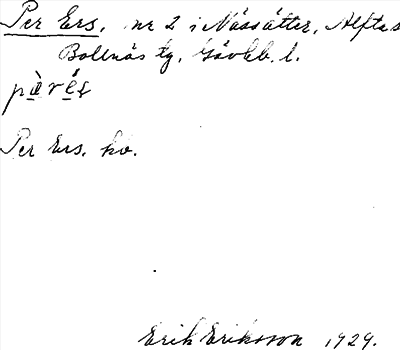 Per Ers. nr 2 i Nässätter, Alfta s
Bollnäs tg, Gävleb. l.
Per Ers. hb.
Erik Eriksson 1929.